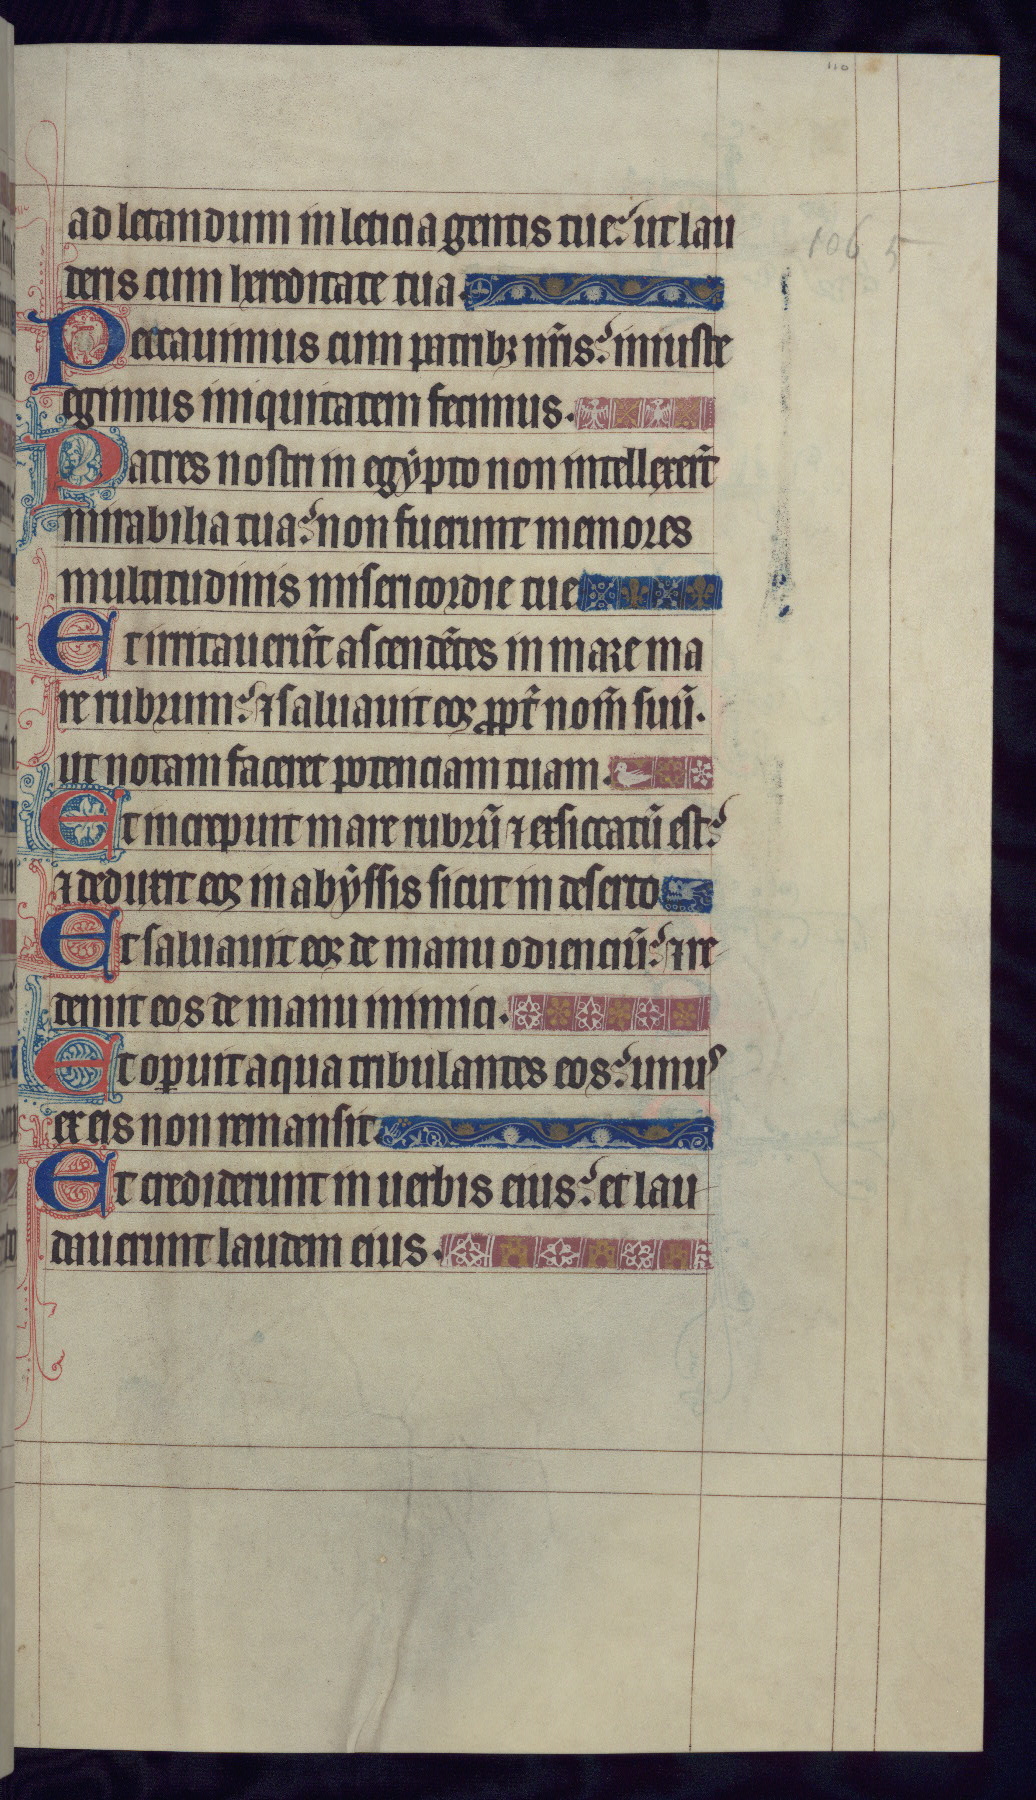 110
106 5
ad letandum in leticia gentis tue: ut lau
deris cum hereditate tua.
Peccauimus cum patribꝫ nr̄is: iniuste
egimus iniquitatem fecimus.
Patres nostri in egẏpto non intellexer̄t
mirabilia tua: non fuerunt memores
multitudinis misericordie tue
Et irritauerūt ascendētes in mare ma
re rubrum: ⁊ saluauit eoꝫ ꝓpt̄ nom̄ suū.
ut notam faceret potenciam tuam.
Et increpuit mare rubrū ⁊ exsiccatū est:
⁊ deduxit eoꝫ in abẏssis sicut in deserto
Et saluauit eoꝫ de manu odienciū: ⁊ re
demit eos de manu inimici.
Et oꝑuit aqua tribulantes eos: unuꝰ
ex eis non remansit.
Et crediderunt in uerbis eius: et lau
dauerunt laudem eius.